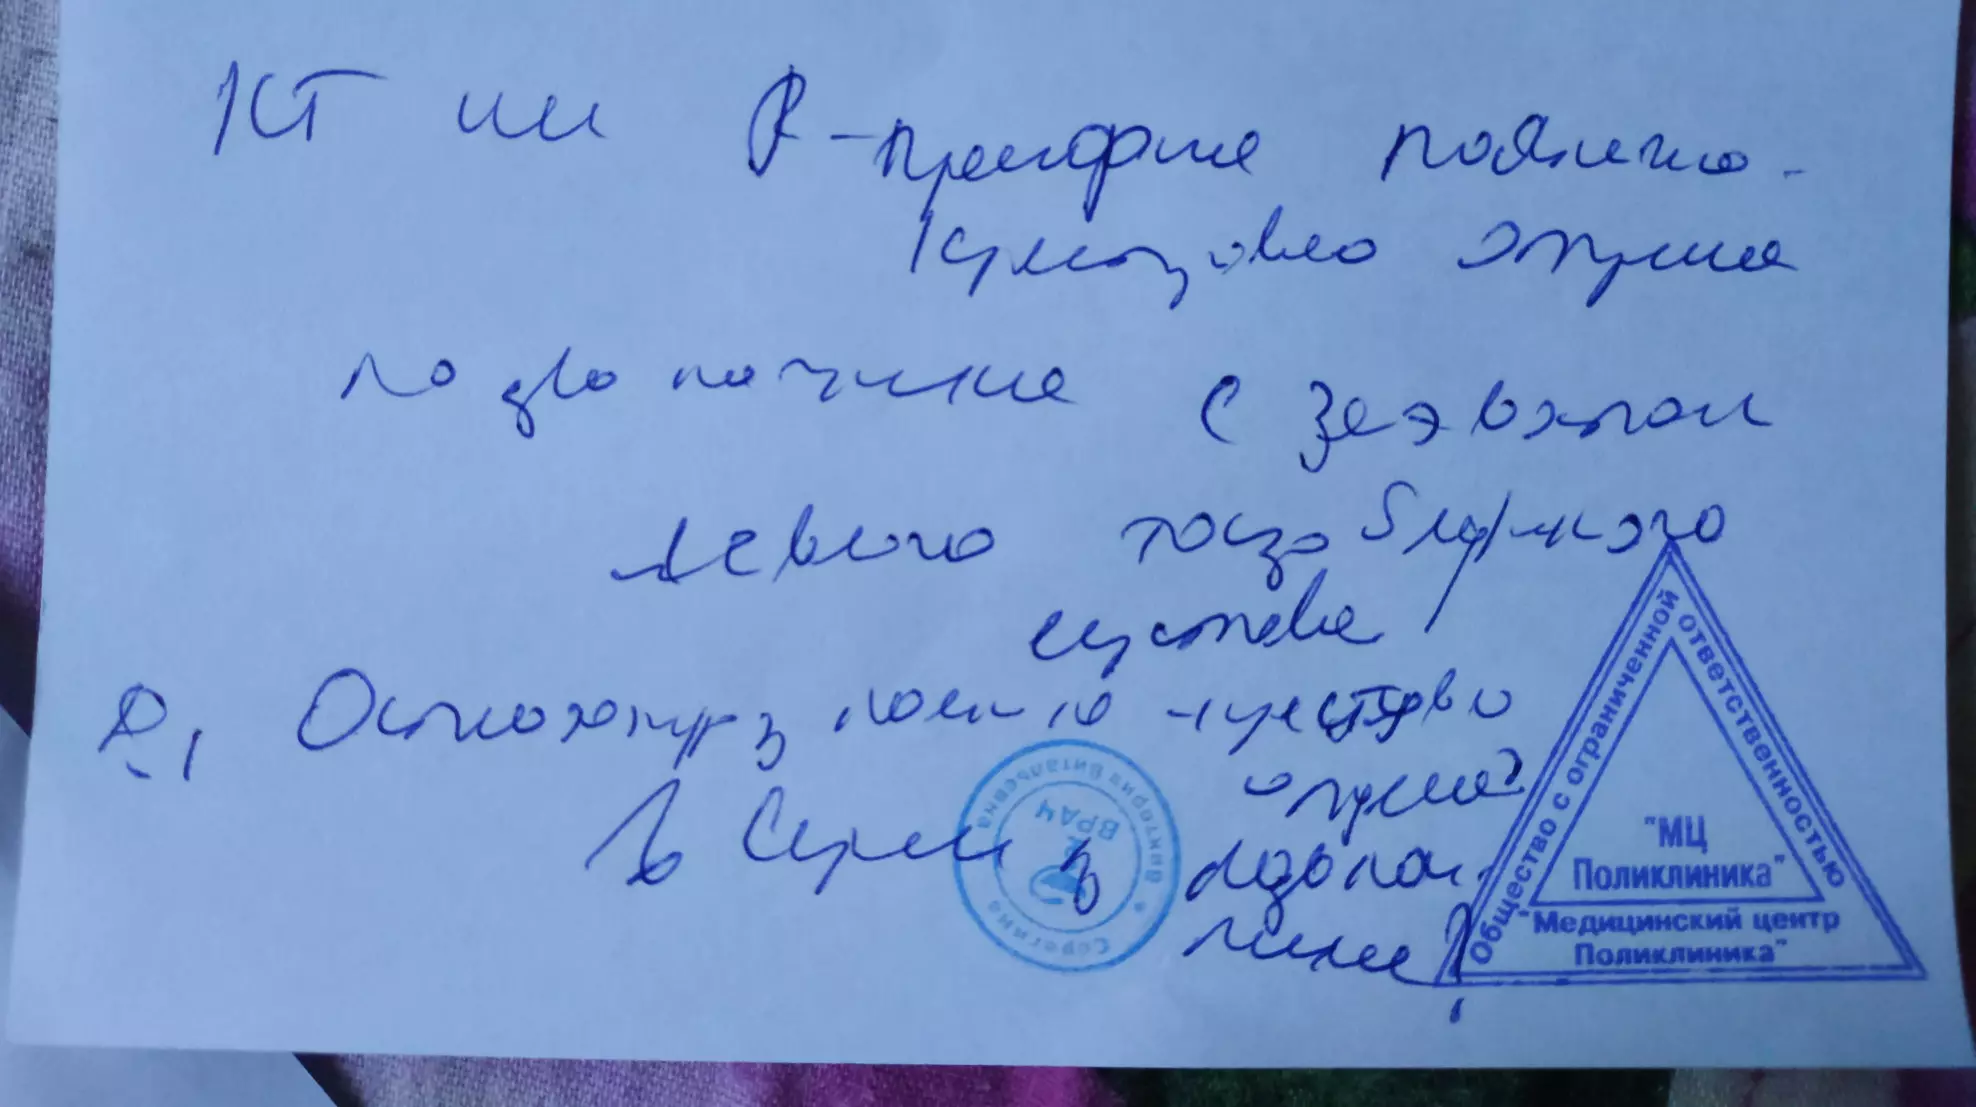 КТ или R-графия пояснично-
крестцового отдела
позвоночника с захватом
левого тазобедренного
сустава
Ds, Остеохондроз пояснично
отдела
позвоноч.
ника
ВРАЧ
Виктория Витальевна
Общество с ограниченной ответственностью
"МЦ
Поликлиника"
"Медицинский центр
Поликлиника"